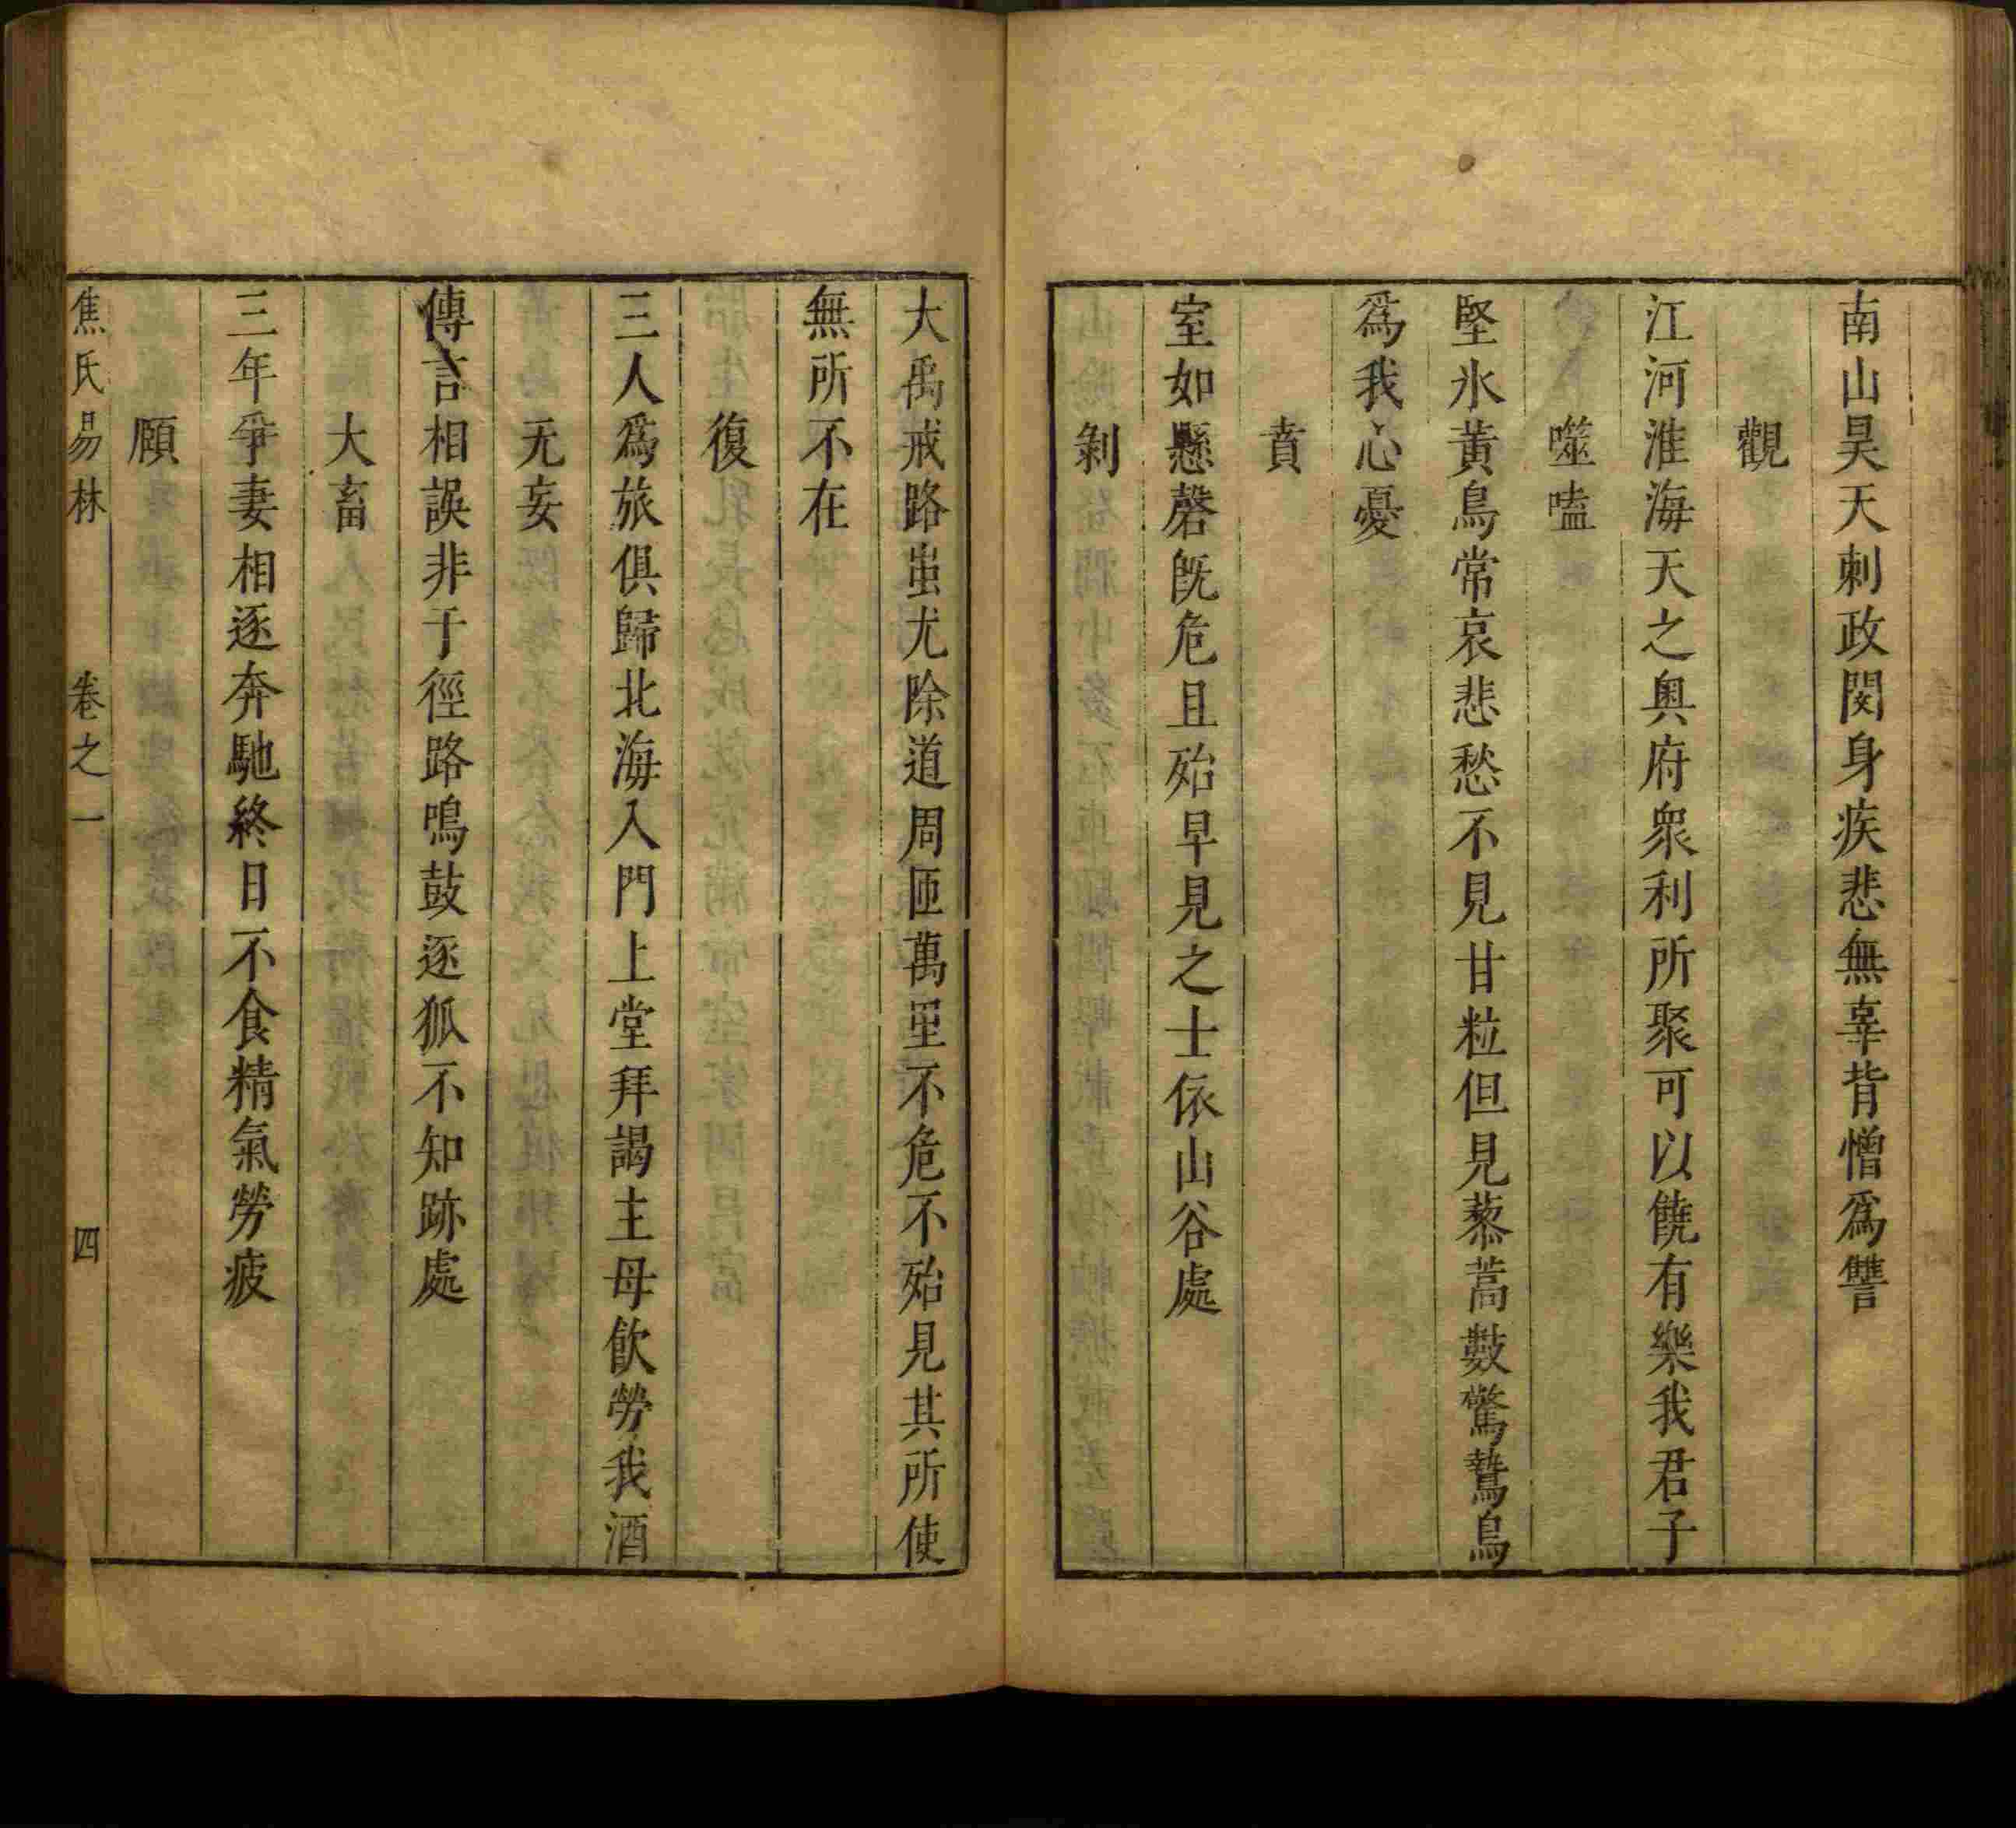 南山昊天刺政閔身疾悲無辜背憎爲讐
觀
江河淮海天之奥府衆利所聚可以饒有樂我君子
噬嗑
堅氷黃鳥常哀悲愁不見甘粒但見藜蒿數驚鷙鳥
爲我心憂
賁
室如懸磬旣危且殆早見之士依山谷處
剝
大禹戒路蚩尤除道周匝萬里不危不殆見其所使
無所不在
復
三人爲旅俱歸北海入門上堂拜謁主母飮勞我酒
无妄
傳言相誤非于徑路鳴鼓逐狐不知跡處
大畜
三年爭妻相逐奔馳終日不食精氣勞疲
頤
焦氏易林 卷之一 四